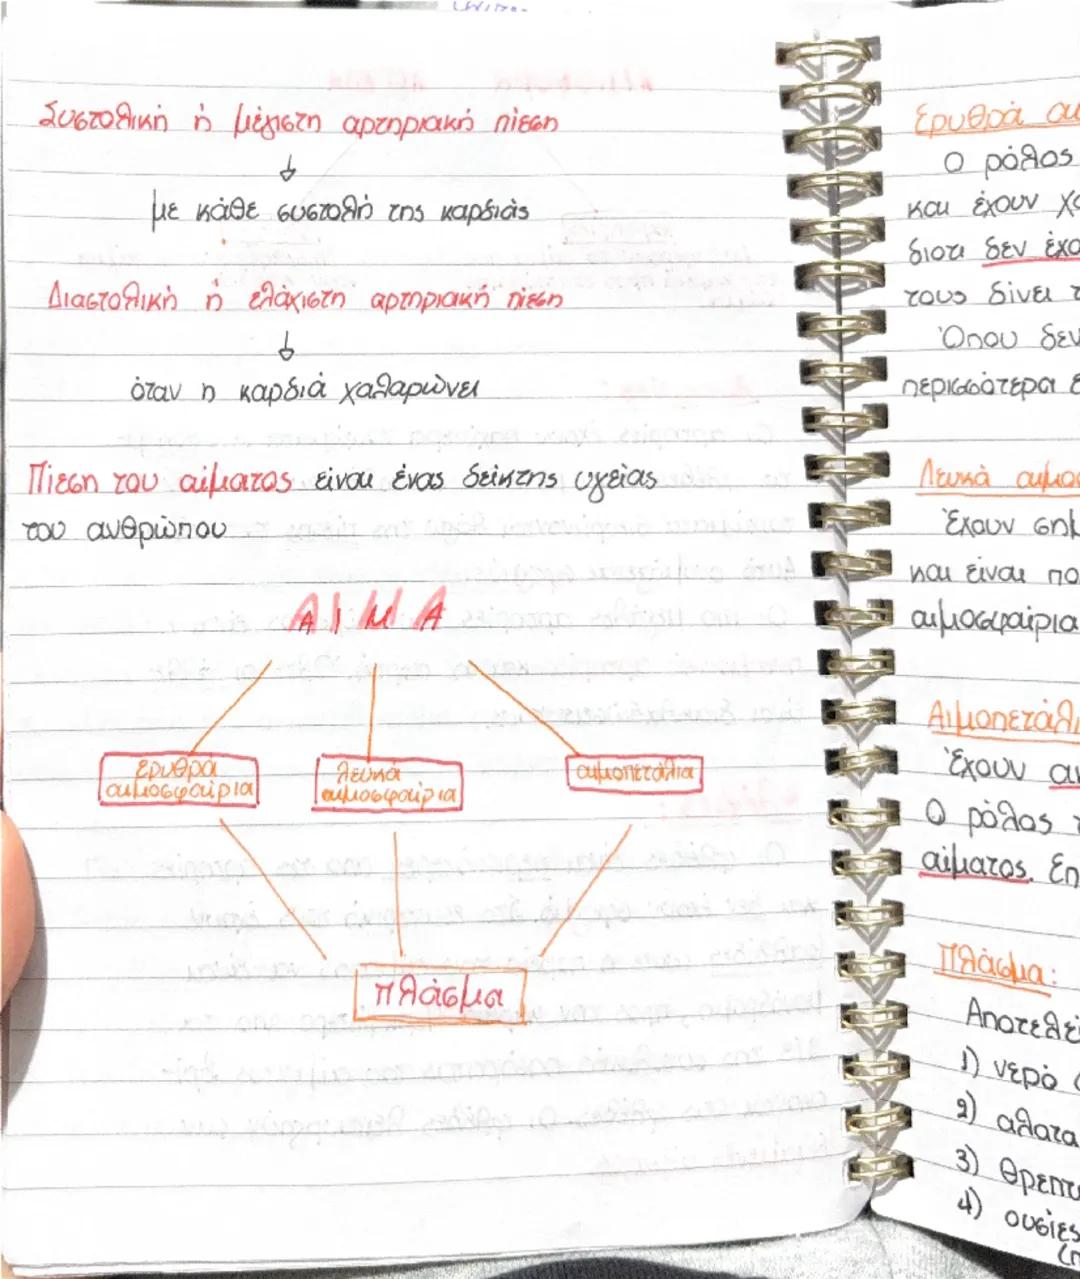 Συστολική ή μέγιστη αρτηριακή πίεση
με κάθε συστολή της καρδιάς
Διαστολική ή ελάχιστη αρτηριακή πίεση
όταν η καρδιά χαλαρώνει
Πίεση του αίματος είναι ένας δείκτης υγείας
του ανθρώπου
ΑΙΜΑ
ερυθρά
αιμοσφαίρια
λευκά
αιμοσφαίρια
αιμοπετάλια
πλάσμα
Ερυθρά
Ο ρόλος
και έχουν
διοτι δεν
τους δίνει
Όπου δεν
περισσότερα
Λευκά
Έχουν
και είναι
αιμοσφαίρια
Έχουν
Ο ρόλος
αίματος.
Πλάσμα:
1) νερό
2) αλατα
3)
4) ουσίες